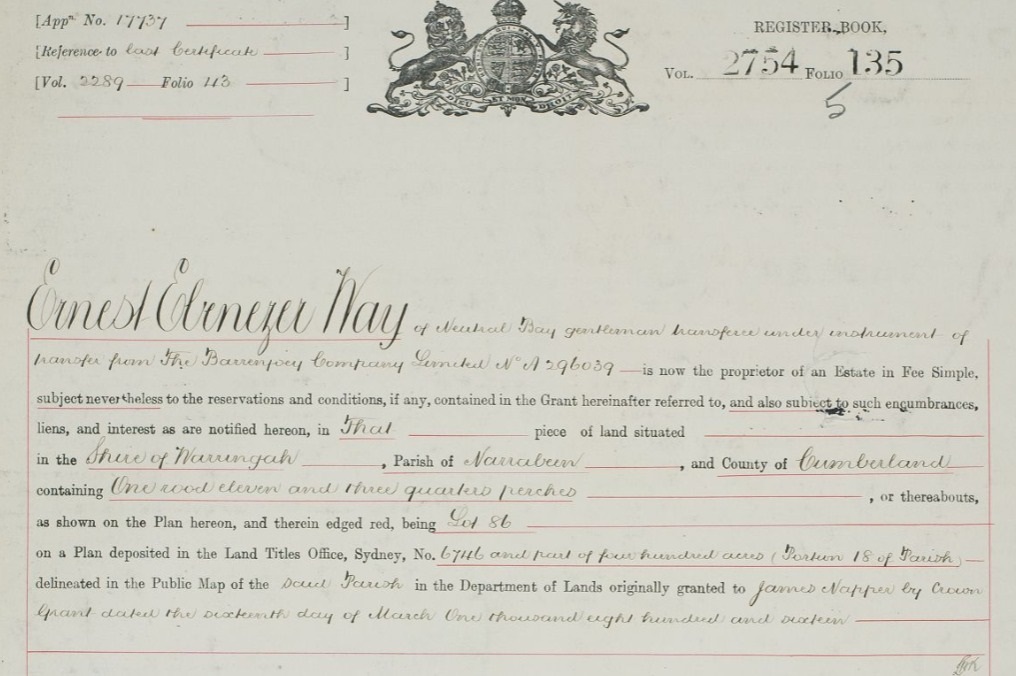 [Appn. No. 17737 ]
[Reference to last Certificate ]
[Vol. 2289 Folio 113 ]
DIEU ET MON DROIT
REGISTER BOOK,
VOL. 2754 FOLIO 135
5
Ernest Ebenezer Way of Neutral Bay gentleman transferee under instrument of
transfer from The Barrenjoey Company Limited No A 296039 is now the proprietor of an Estate in Fee Simple,
subject nevertheless to the reservations and conditions, if any, contained in the Grant hereinafter referred to, and also subject to such encumbrances,
liens, and interest as are notified hereon, in That piece of land situated
in the Shire of Warringah , Parish of Narrabeen , and County of Cumberland
containing One rood eleven and three quarters perches , or thereabouts,
as shown on the Plan hereon, and therein edged red, being Lot 86
on a Plan deposited in the Land Titles Office, Sydney, No. 6746 and part of four hundred acres (Portion 18 of Parish)
delineated in the Public Map of the said Parish in the Department of Lands originally granted to James Napper by Crown
Grant dated the sixteenth day of March One thousand eight hundred and sixteen